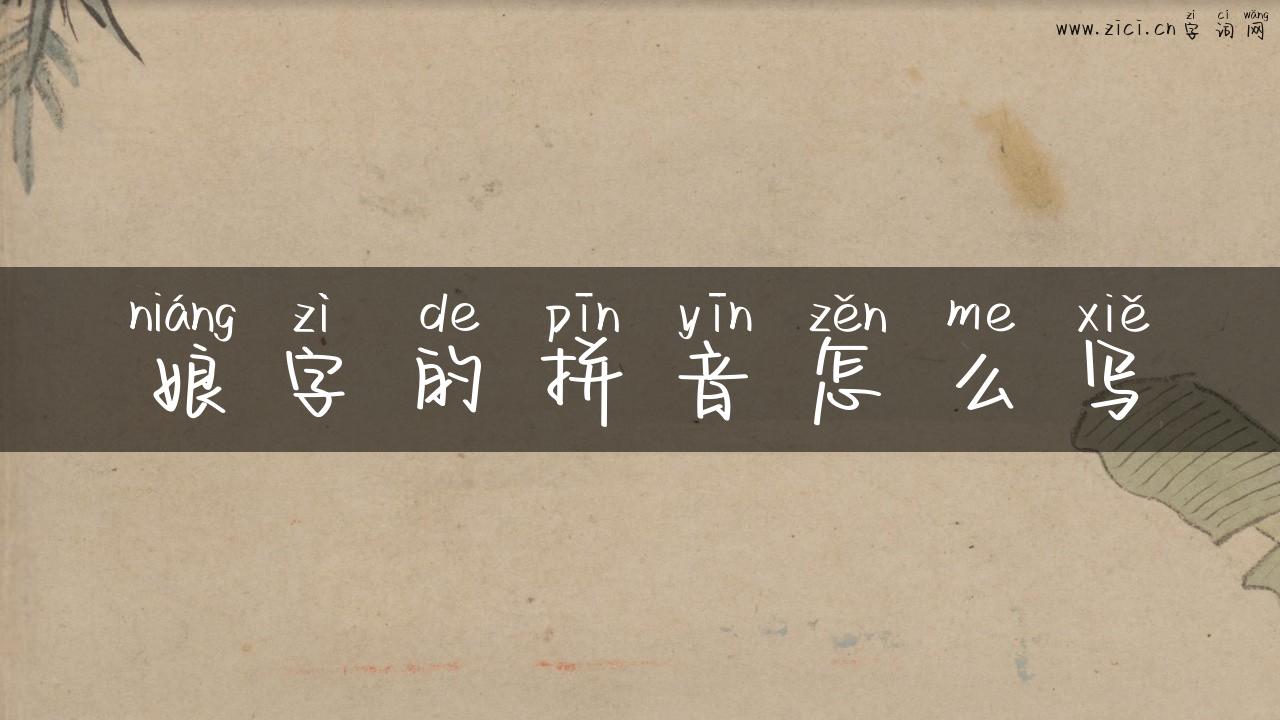 zì cí wǎng
www.zici.cn 字词网
niáng zì de pīn yīn zěn me xiě
娘字的拼音怎么写